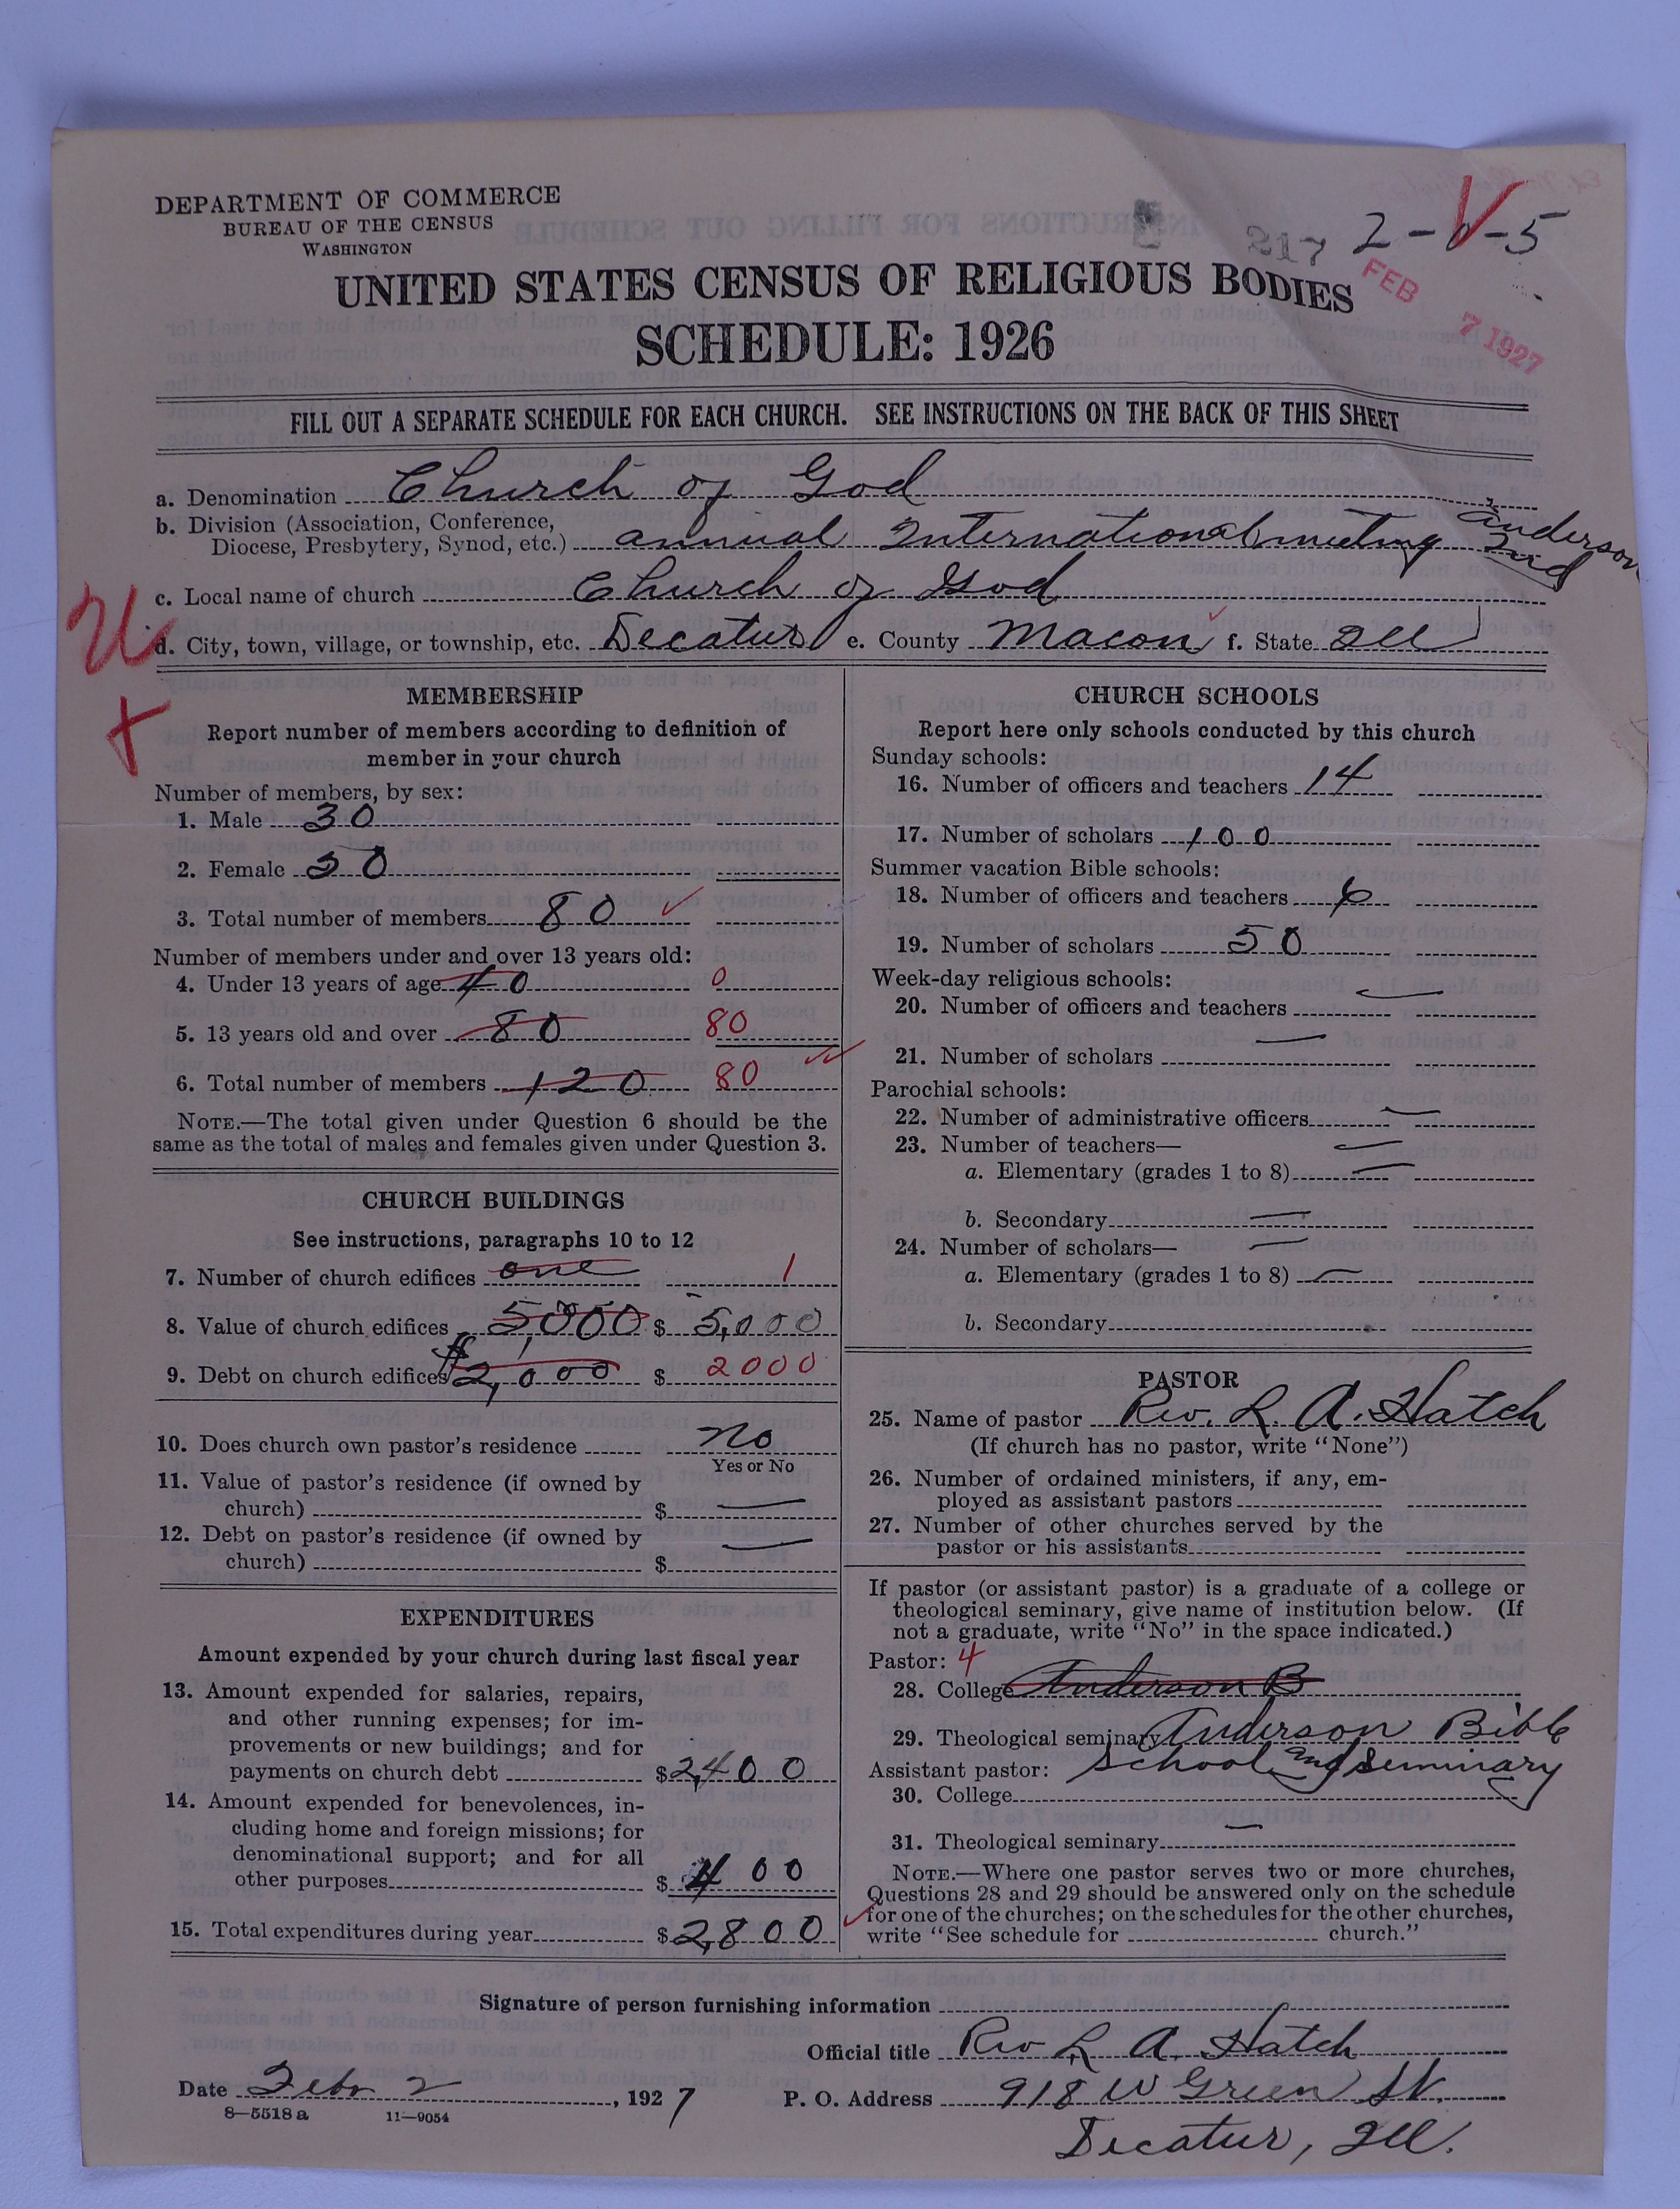 DEPARTMENT OF COMMERCE
BUREAU OF THE CENSUS
WASHINGTON
217 2-V-5
FEB 7 1927
UNITED STATES CENSUS OF RELIGIOUS BODIES
SCHEDULE: 1926
FILL OUT A SEPARATE SCHEDULE FOR EACH CHURCH. SEE INSTRUCTIONS ON THE BACK OF THIS SHEET
a. Denomination Church of God
b. Division (Association, Conference, Diocese, Presbytery, Synod, etc.) annual International meeting Anderson Ind
c. Local name of church Church of God
d. City, town, village, or township, etc. Decatur e. County Macon f. State Ill
MEMBERSHIP
Report number of members according to definition of
member in your church
Number of members, by sex:
1. Male 30
2. Female 50
3. Total number of members 80
Number of members under and over 13 years old:
4. Under 13 years of age 40 0
5. 13 years old and over 80 80
6. Total number of members 120 80
NOTE.—The total given under Question 6 should be the
same as the total of males and females given under Question 3.
CHURCH BUILDINGS
See instructions, paragraphs 10 to 12
7. Number of church edifices one 1
8. Value of church edifices 5000 $ 5,000
9. Debt on church edifices $2,000 $ 2000
10. Does church own pastor's residence no
Yes or No
11. Value of pastor's residence (if owned by
church) $ —
12. Debt on pastor's residence (if owned by
church) $ —
EXPENDITURES
Amount expended by your church during last fiscal year
13. Amount expended for salaries, repairs,
and other running expenses; for im-
provements or new buildings; and for
payments on church debt $2,400
14. Amount expended for benevolences, in-
cluding home and foreign missions; for
denominational support; and for all
other purposes $ 400
15. Total expenditures during year $2,800
CHURCH SCHOOLS
Report here only schools conducted by this church
Sunday schools:
16. Number of officers and teachers 14
17. Number of scholars 100
Summer vacation Bible schools:
18. Number of officers and teachers 6
19. Number of scholars 50
Week-day religious schools:
20. Number of officers and teachers —
21. Number of scholars —
Parochial schools:
22. Number of administrative officers —
23. Number of teachers— —
a. Elementary (grades 1 to 8) —
b. Secondary —
24. Number of scholars— —
a. Elementary (grades 1 to 8) —
b. Secondary
PASTOR
25. Name of pastor Rev. L. A. Hatch
(If church has no pastor, write "None")
26. Number of ordained ministers, if any, em-
ployed as assistant pastors
27. Number of other churches served by the
pastor or his assistants
If pastor (or assistant pastor) is a graduate of a college or
theological seminary, give name of institution below. (If
not a graduate, write "No" in the space indicated.)
Pastor: 4
28. College Anderson B
29. Theological seminary Anderson Bible
School and Seminary
Assistant pastor:
30. College
31. Theological seminary —
NOTE.—Where one pastor serves two or more churches,
Questions 28 and 29 should be answered only on the schedule
for one of the churches; on the schedules for the other churches,
write "See schedule for church."
Signature of person furnishing information
Official title Rev L. A. Hatch
Date Febr 2, 1927 P. O. Address 918 W Green St.
8—5518 a 11—9054
Decatur, Ill.